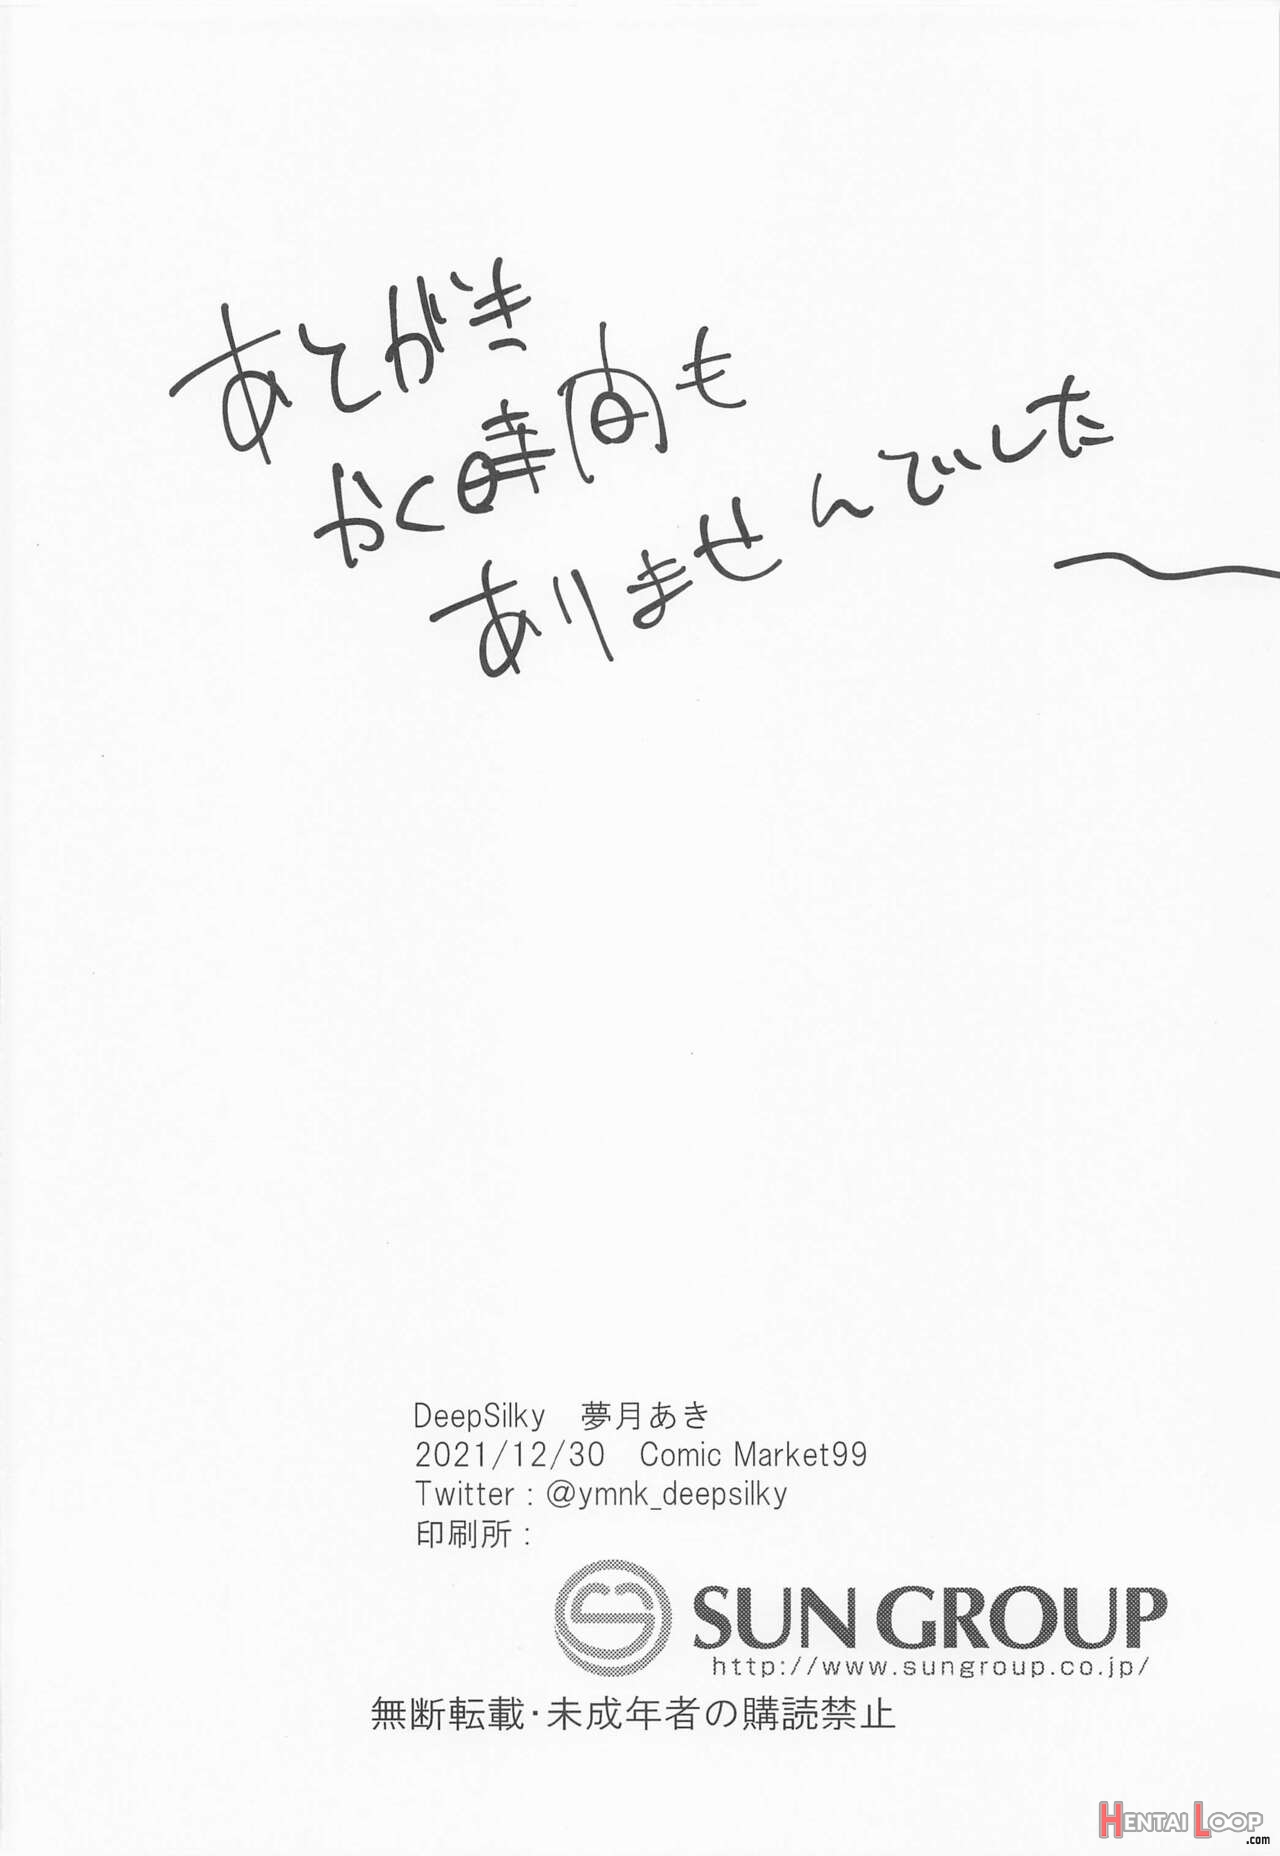 あとがき
かく時間も
ありませんでした
DeepSilky　夢月あき
2021/12/30　Comic Market99
Twitter : @ymnk_deepsilky
印刷所 :
SUN GROUP
http://www.sungroup.co.jp/
無断転載・未成年者の購読禁止
HENTAI LOOP
.com